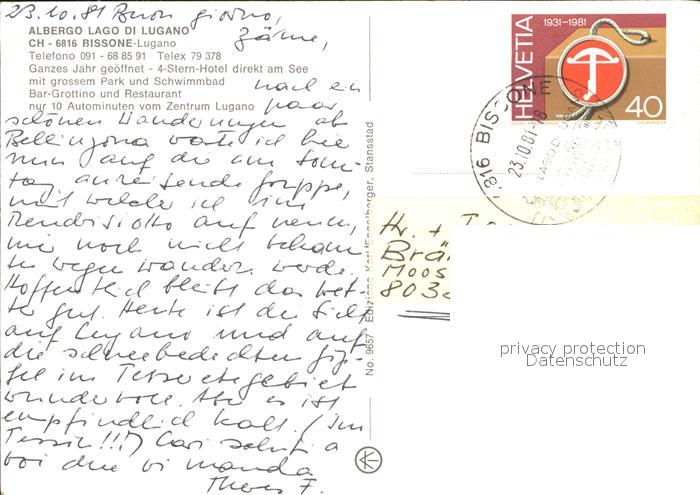 23.10.81 Buon giorno,
zäme,
ALBERGO LAGO DI LUGANO
CH - 6816 BISSONE-Lugano
Telefono 091 - 68 85 91 Telex 79 378
Ganzes Jahr geöffnet - 4-Stern-Hotel direkt am See
mit grossem Park und Schwimmbad
Bar-Grottino und Restaurant
nur 10 Autominuten vom Zentrum Lugano
nach ein
paar
schönen Wanderungen ab
Bellinzona warte ich hie
nun auf die am Sonn-
tag anreisende Gruppe,
mit welcher ich im
Mendrisiotto auf neuen,
mir noch nicht bekann-
ten wegen wandern werde.
Hoffentlich bleibt das Wet-
ter gut. Heute ist die Sicht
auf Lugano und auf
die schneebedeckten Gip-
fel im Tesseretegebiet
wundervoll. Aber es ist
empfindlich kalt. (Im
Tessin!!!) Cari saluti a
voi due vi manda
Theres F.
No. 9657 Edizione Karl Engelberger, Stansstad
HELVETIA
1931-1981
40
6816 BISSONE
23.10.81-18
LAGO DI LUGANO
Hr. +
Brä
Moos
803
privacy protection
Datenschutz